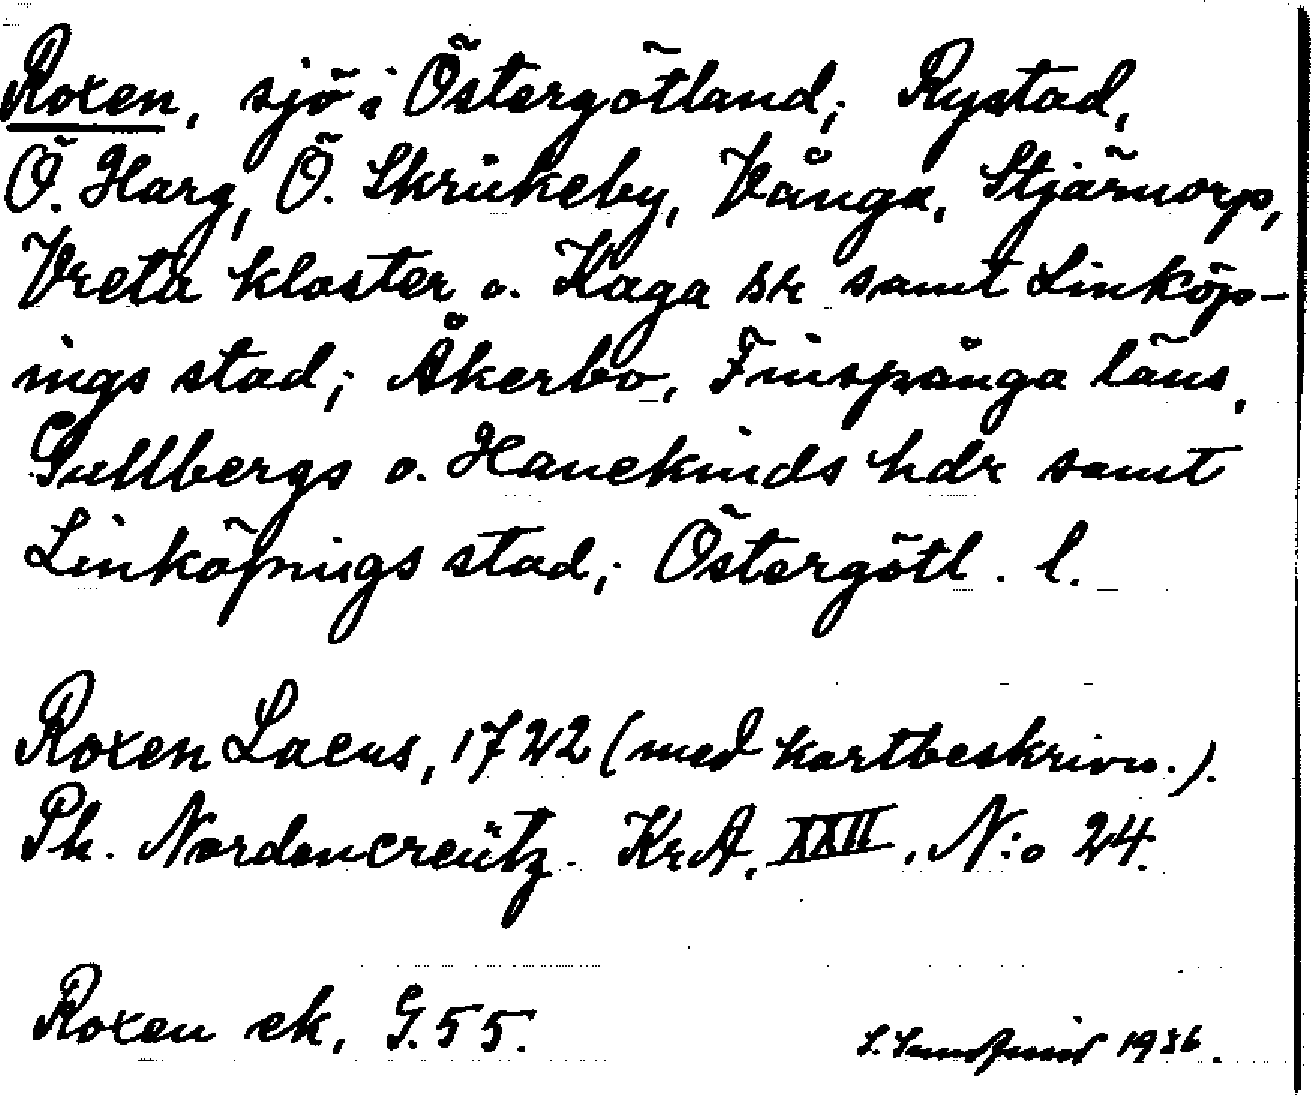 Roxen, sjö i Östergötland; Rystad,
Ö. Harg, Ö. Skrukeby, Vånga, Stjärnorp,
Vreta kloster o. Kaga sr samt Linköp-
ings stad; Åkerbo, Finspånga läns,
Gullbergs o. Hanekinds hdr samt
Linköpings stad; Östergötl. l.
Roxen Lacus, 1722 (med kartbeskrivn.).
Ph. Nordencreütz. Kr.A. XXII, N:o 24.
Roxen ek, G. 55.
S. 1936.